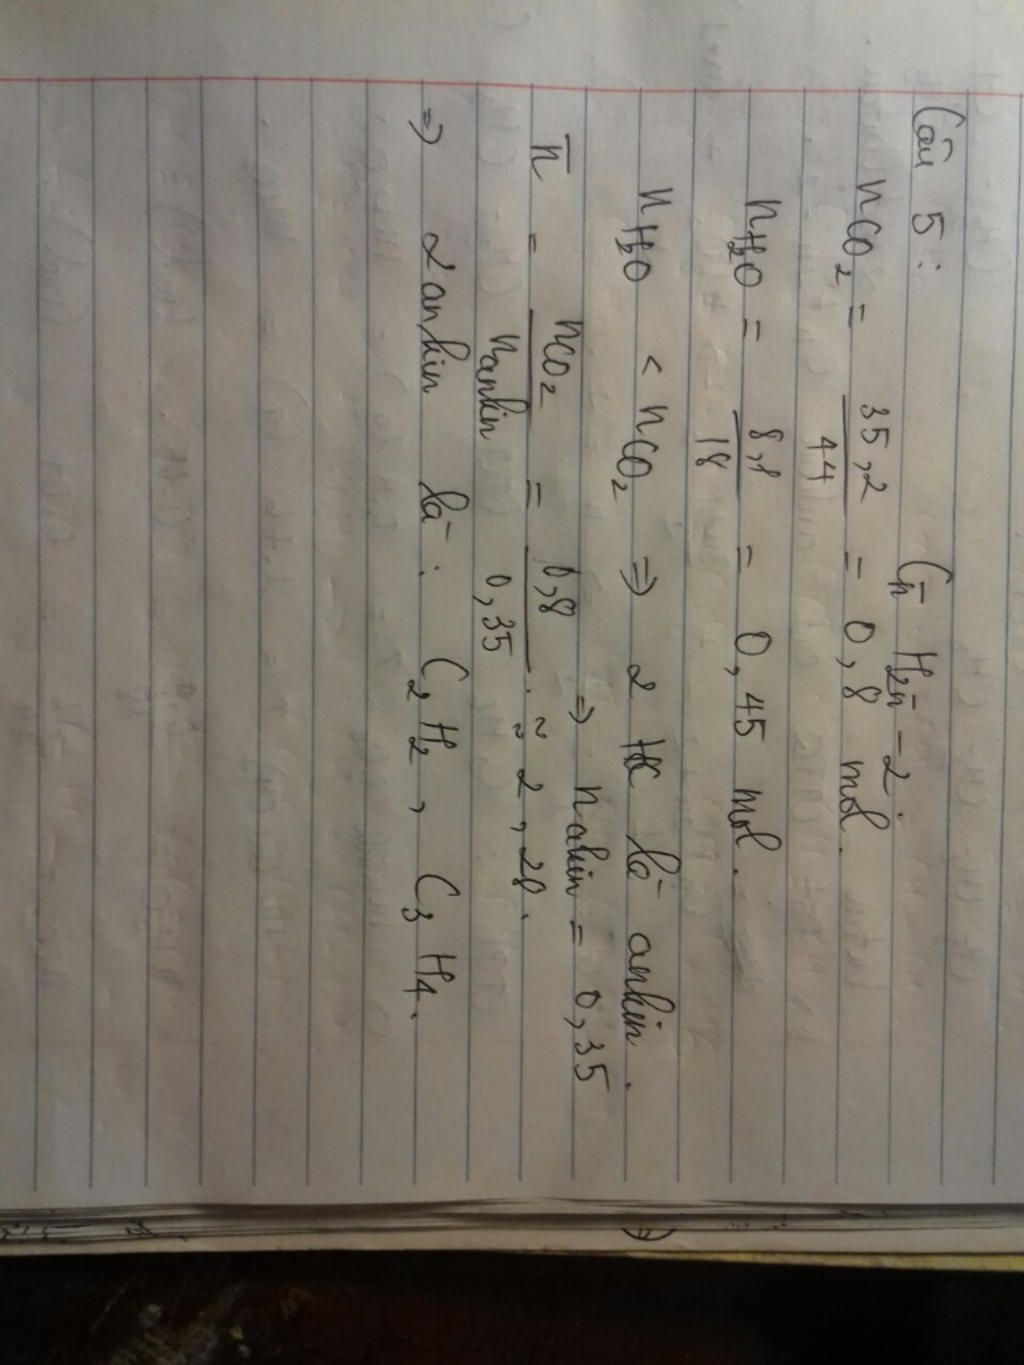 Câu 5:
Cn̄ H2n̄-2.
nCO2 = 35,2/44 = 0,8 mol.
nH2O = 8,1/18 = 0,45 mol.
nH2O < nCO2 ⇒ 2 HC là ankin.
⇒ nakin = 0,35
n̄ = nCO2/nankin = 0,8/0,35 ≈ 2,28.
⇒ 2 ankin là: C2H2, C3H4.